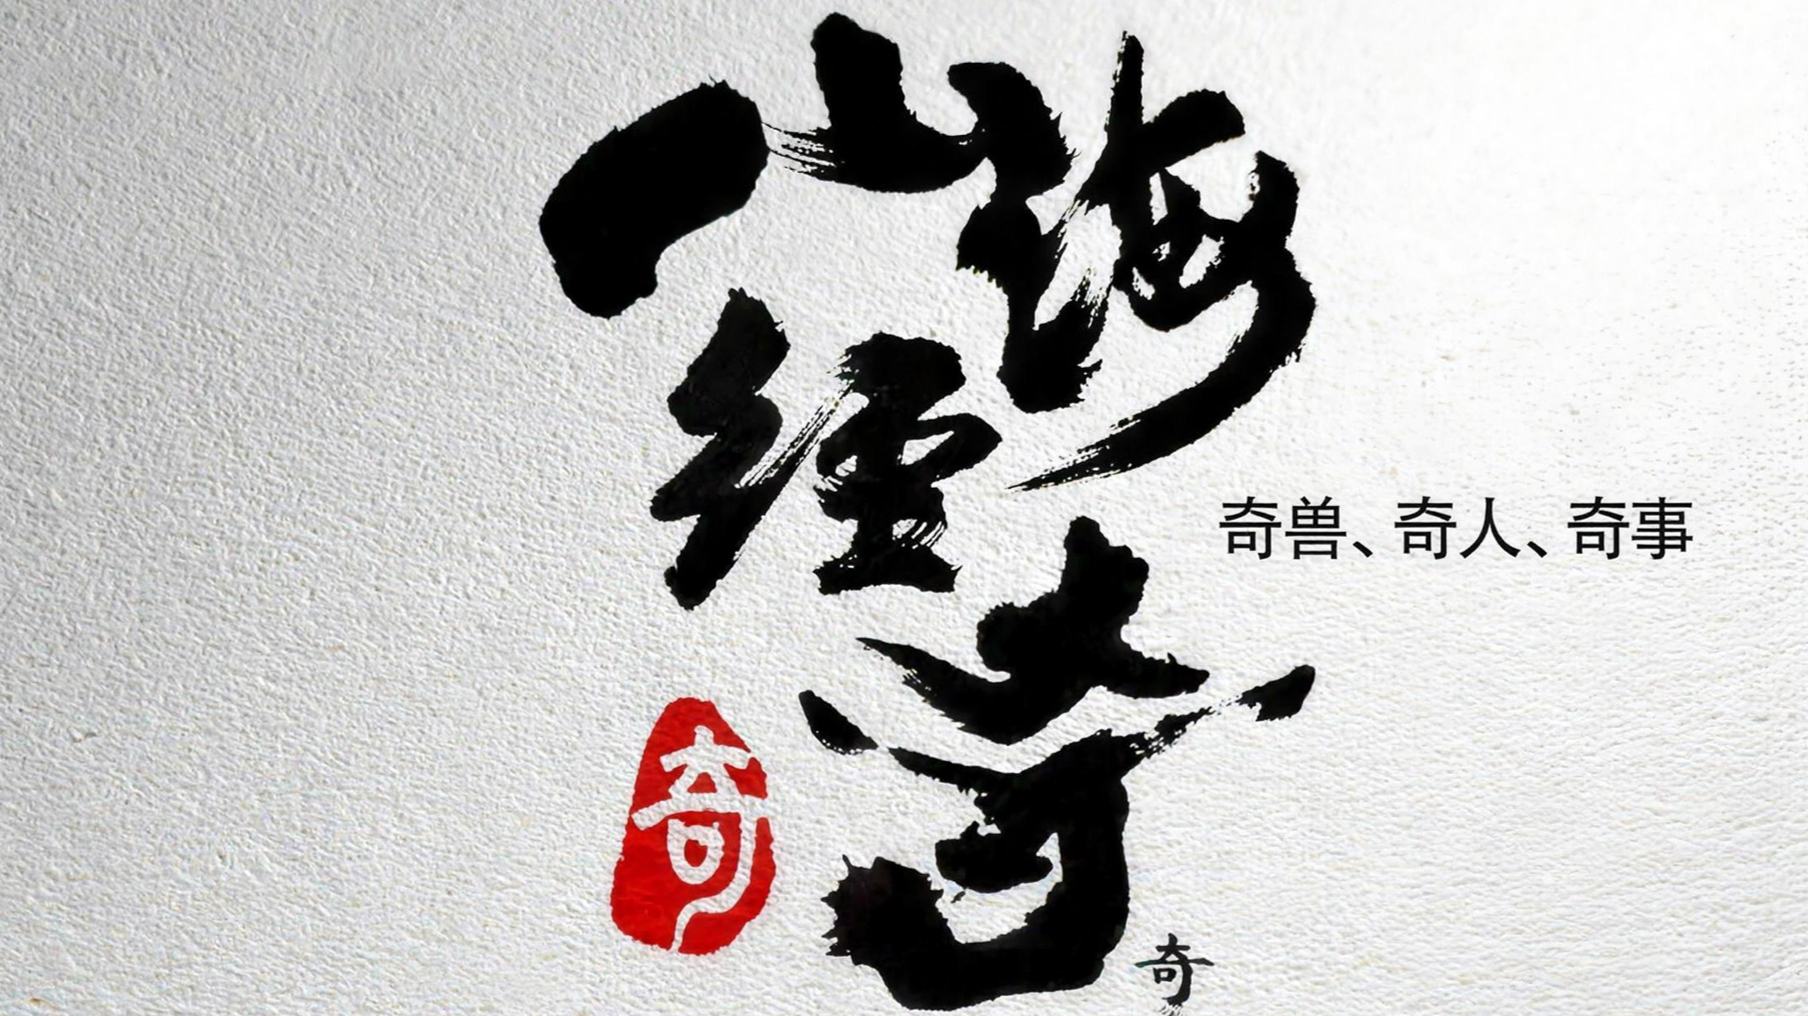 山海
經
奇
奇兽、奇人、奇事
奇
奇